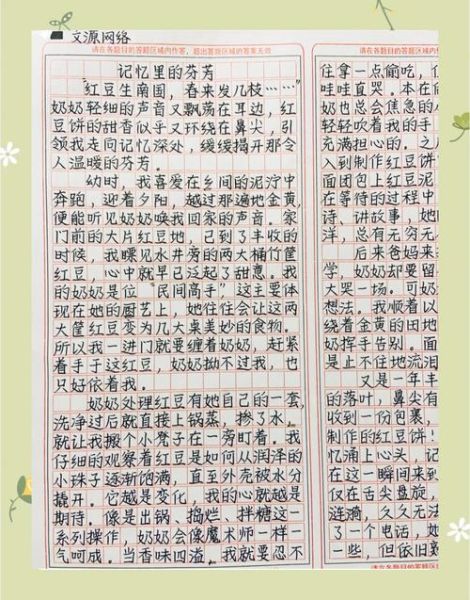 文源网络
请在各题目的答题区域内作答，超出答题区域的答案无效
记忆里的芬芳
"红豆生南国，春来发几枝……"
奶奶轻细的声音又飘荡在耳边，红
豆饼的甜香似乎又环绕在鼻尖，引
领我走向记忆深处，缓缓揭开那令
人温暖的芬芳。
幼时，我喜爱在乡间的泥泞中
奔跑，迎着夕阳，越过那遍地金黄，
便能听见奶奶唤我回家的声音。家
门前的大片红豆地，已到了丰收的
时候，我瞟见水井旁的两大桶竹筐
红豆，心中就早已泛起了甜意。我
的奶奶是位"民间高手"，这主要体
现在她的厨艺上，她往住会让这两
大筐红豆变为几大桌美妙的食物。
所以我一进门就要缠着奶奶，赶紧
着手于这红豆，奶奶拗不过我，也
只好依着我。
奶奶处理红豆有她自己的一套，
洗净过后就直接上锅蒸，掺了水，
就让我搬个小凳子在一旁盯着。我
仔细的观察着红豆是如何从润泽的
小珠子逐渐饱满，直至外壳被水分
撬开。它越是变化，我的心就越是
期待。像是出锅、捣烂、拌糖这一
系列操作，奶奶会像魔术师一样一
气呵成。当香味四溢，我就要忍不
请在各题目的答题区域内
住拿一点偷吃，
哇哇直哭。本在
奶也总会焦急的
轻轻吹着我的手
充满担心的。之
入到制作红豆饼
面团包上红豆泥
在等待的过程中
诗，讲故事，她
洋，总有无穷无
后来爸妈来
学，奶奶却要留
大哭一场。可奶
想法。我顺着以
绕着金黄的田地
奶挥手告别。面
是止不住地流泪
又是一年丰
的落叶，鼻尖有
收到一份包裹，
制作的红豆饼！
忆涌上心头，记
在这一瞬间来到
仅在舌尖盘旋，
涟漪，久久无法
了一个电话，她
一些，但依旧
请在各题目的答